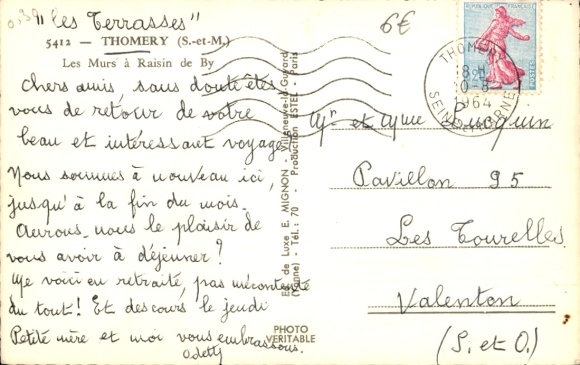 0,30
"Les Terrasses"
6€
5412 — THOMERY (S.-et-M.)
Les Murs à Raisin de By
Chers amis, sans doute êtes
vous de retour de votre
beau et intéressant voyage.
Nous sommes à nouveau ici,
jusqu'à la fin du mois.
Aurons-nous le plaisir de
vous avoir à déjeuner ?
Me voici en retraite, pas mécontente
du tout ! Et des cours le jeudi
Petite mère et moi vous embrassons.
Odette
Ed. de Luxe E. MIGNON - Villeneuve-la-Guyard
(Yonne) - Tél.: 70 - Production ESTEL - Paris
PHOTO
VERITABLE
REPUBLIQUE FRANÇAISE
POSTES
THOMERY
8 H
10-8
1964
SEINE ET MARNE
Mr et Mme
Pavillon 95
Les Tourelles
Valenton
(S. et O.)